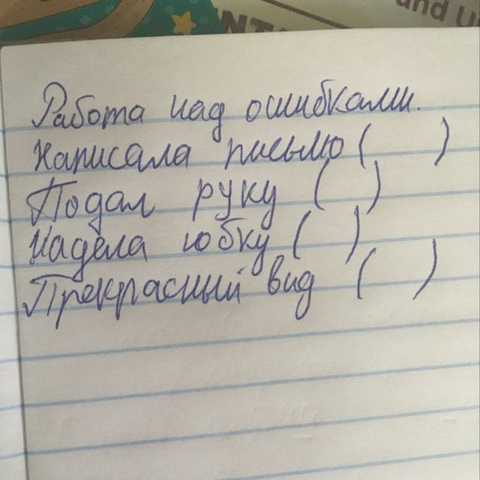 and U
NT
Работа над ошибками.
написала письмо ( )
Подал руку ( )
надела юбку ( )
Прекрасный вид ( )